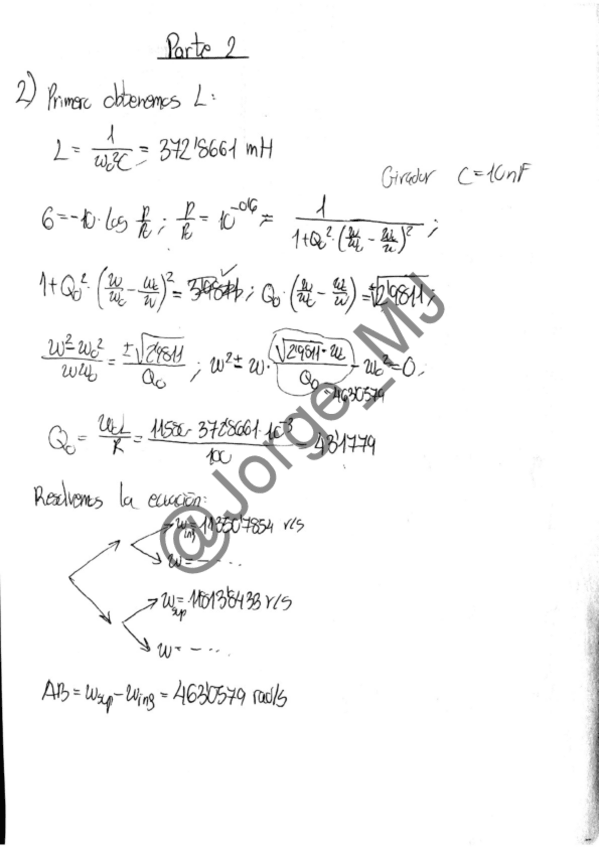 Parte 2
2) Primero obtenemos L:
L = 1/(ω₀²C) = 372'8661 mH
Girador C = 10nF
6 = -10 · log P/Pc ; P/Pc = 10^-0'6 = 1/(1+Q₀²·(ω/ω₀ - ω₀/ω)²) ;
1+Q₀²·(ω/ω₀ - ω₀/ω)² = 3'9811 ; Q₀·(ω/ω₀ - ω₀/ω) = ±√2'9811 ;
(ω² - ω₀²)/(ωω₀) = ±√2'9811/Q₀ ; ω² ± ω·(√2'9811·ω₀)/Q₀ - ω₀² = 0 ;
463'0579
Q₀ = ω₀L/R = (11580 · 372'8661 · 10^-3)/100 = 43'1779
Resolvemos la ecuación:
ω_inf = 11350'7854 r/s
ω = - ...
ω_sup = 11813'8433 r/s
ω = - ...
AB = ω_sup - ω_inf = 463'0579 rad/s
@Jorge_MJ